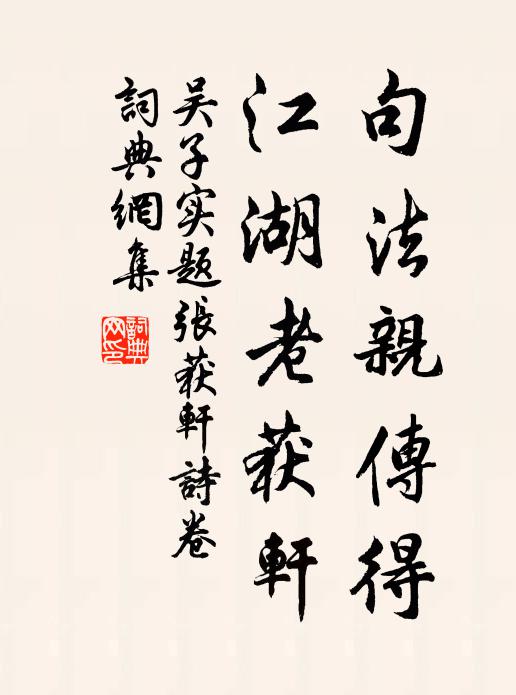 句法親傳得
江湖老荻軒
吴子实题張荻軒詩卷
詞典網集
詞典
网印